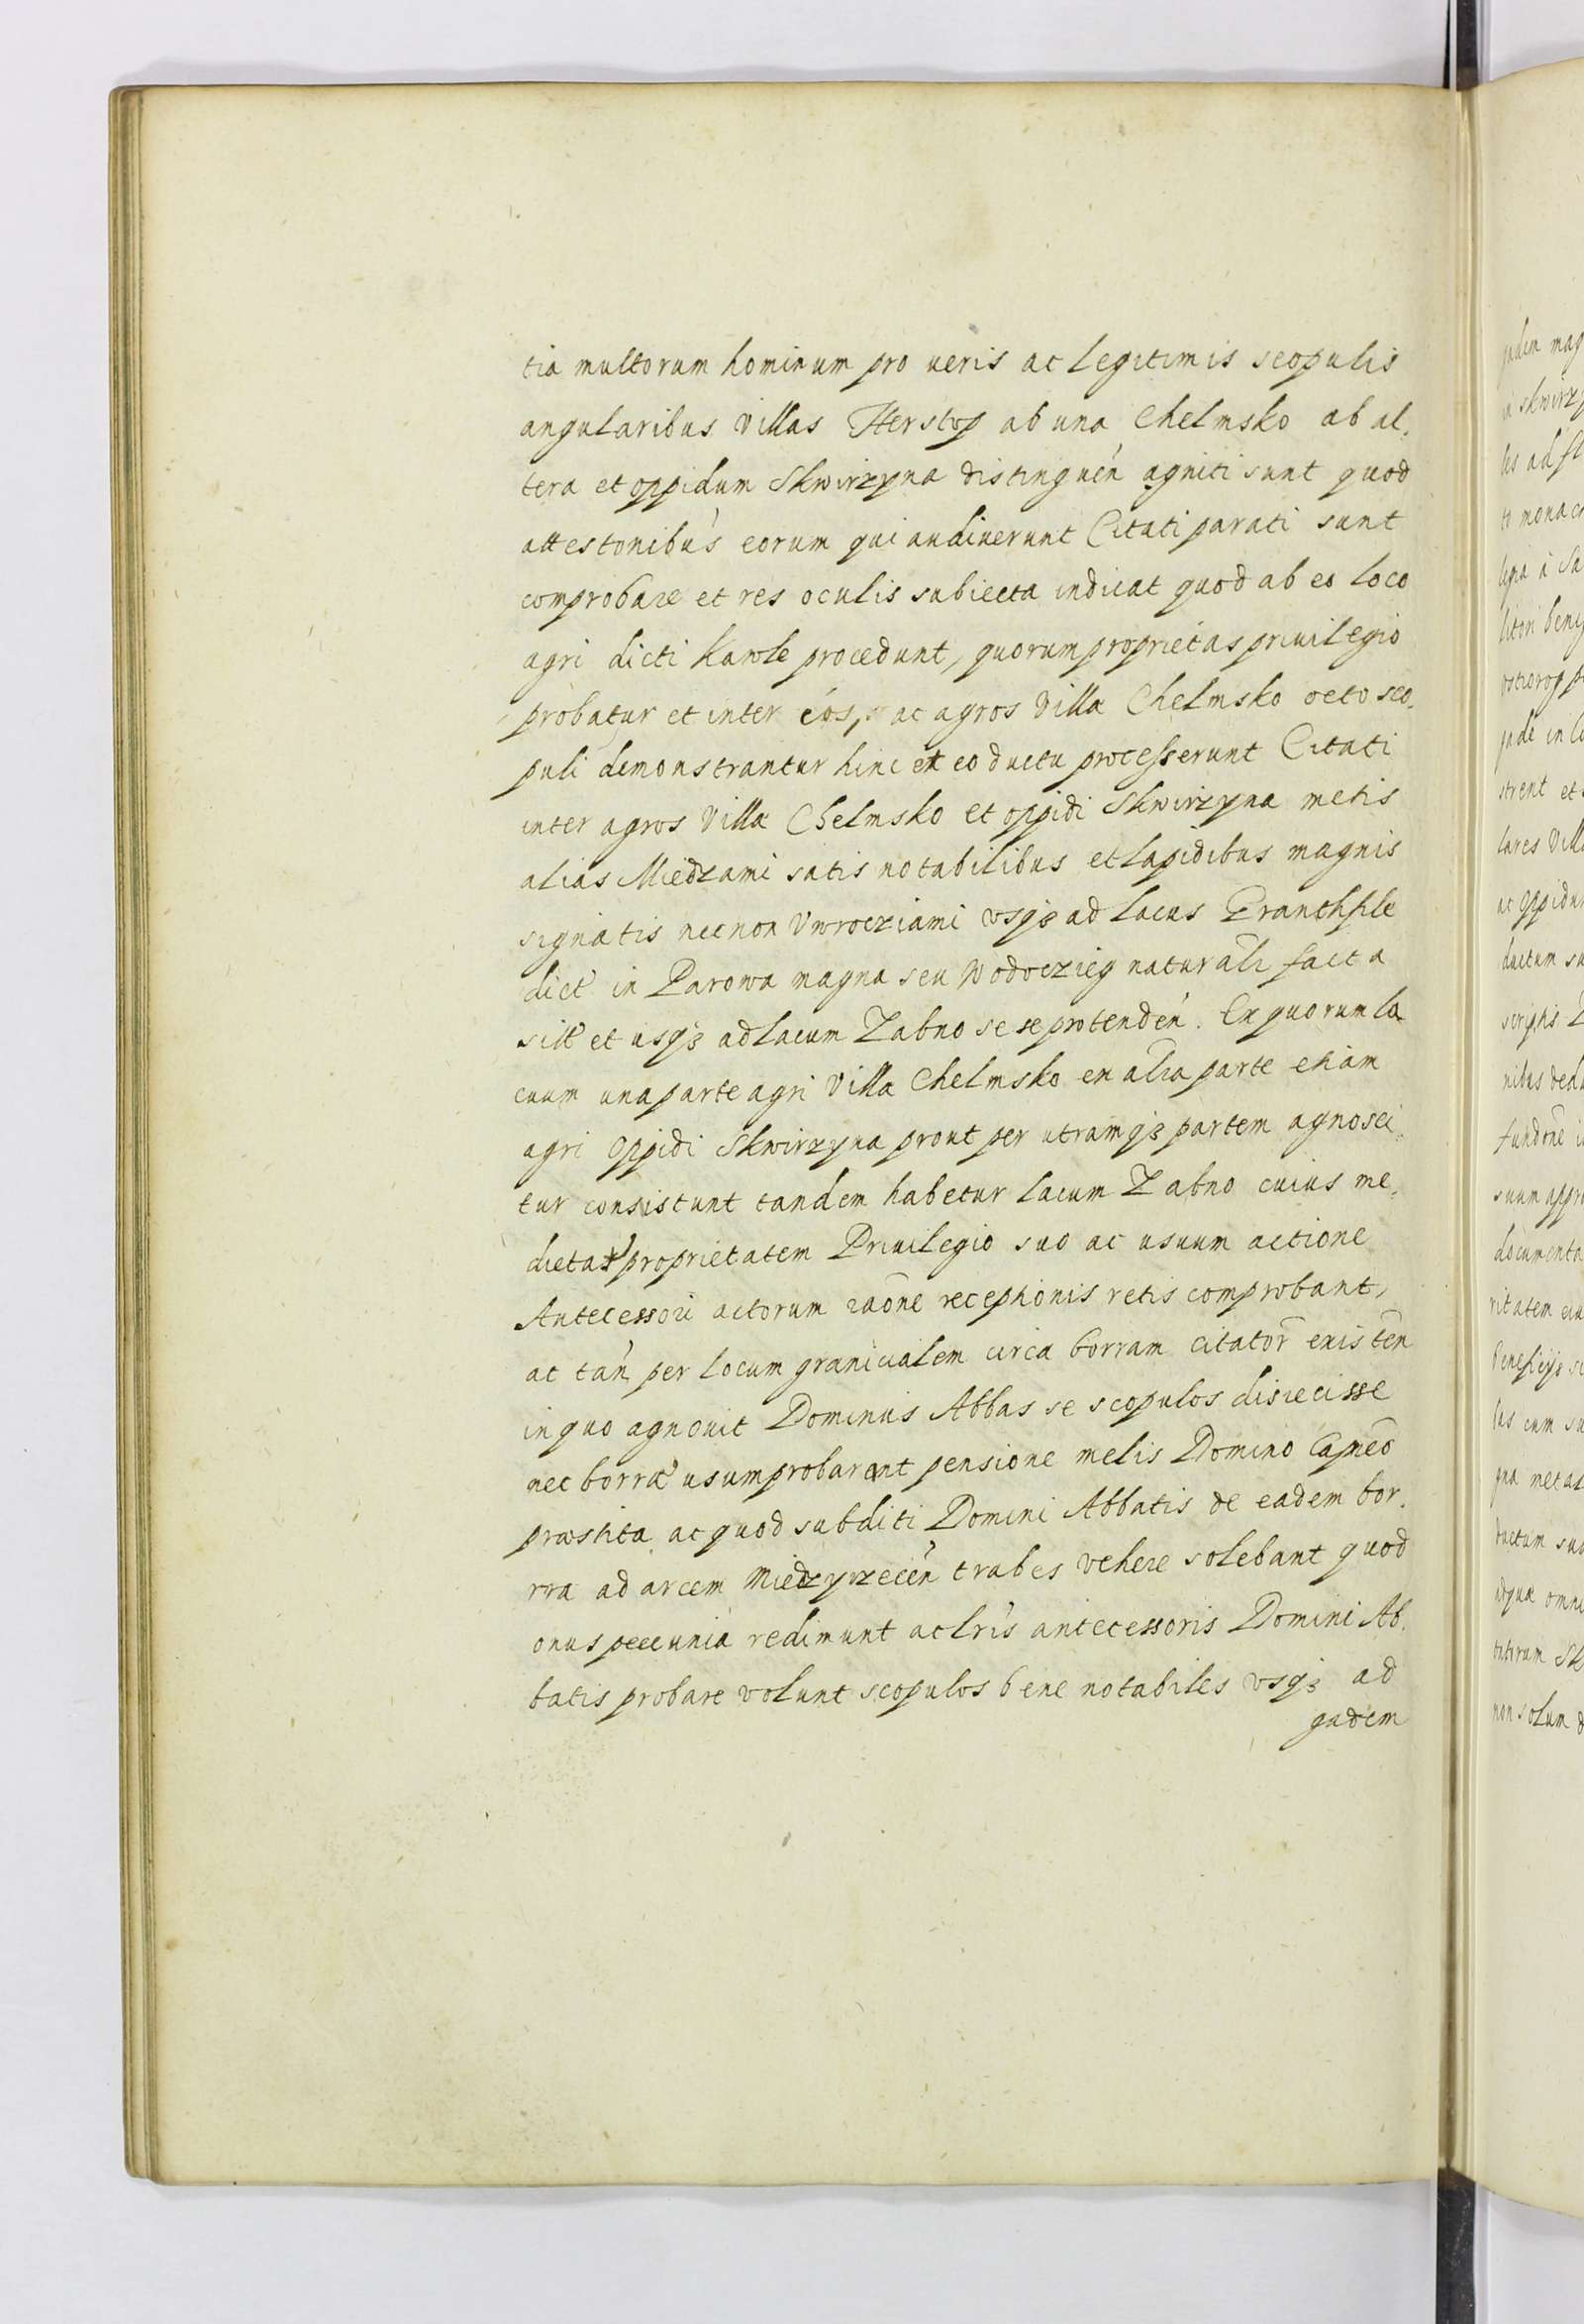 tia multorum hominum pro ueris ac legitimis scopulis
angularibus villas Herstop ab una Chelmsko ab al,
tera et oppidum Skwirzyna distinguen̄ agniti sunt quod
attestonibus eorum qui audiuerunt Citati parati sunt
comprobare et res oculis subiecta indicat quod ab eo loco
agri dicti Kawle procedunt, quorum proprietas priuilegio
probatur et inter eos, ac agros villæ Chelmsko octo sco,
puli demonstrantur hinc et eo ductu processerunt Citati
inter agros villæ Chelmsko et oppidi Skwirzyna metis
alias Miedzami satis notabilibus et lapidibus magnis
signatis necnon Vwrocziami vsqȝ ad lacus Pranthsile
dict in Parowa magna seu Wodoczieg naturali facta
sitt et usqȝ ad lacum Zabno sese protenden̄. Ex quorum la
cuum una parte agri villæ Chelmsko ex alia parte etiam
agri oppidi Skwirzyna prout per utramqȝ partem agnosci,
tur consistunt tandem habetur lacum Zabno cuius me,
dietat proprietatem Priuilegio suo ac usuum actione
Antecessori actorum raōne receptionis retis comprobant,
ac tan̄ per locum granicialem circa borram citator̄ existēn
in quo agnouit Dominus Abbas se scopulos disiecisse
nec borræ usum probarent pensione melis Domino Capnēo
præstita ac quod subditi Domini Abbatis de eadem bor,
rra ad arcem Miedzyrzecen̄ trabes vehere solebant quod
onus peccunia redimunt ac lris antecessoris Domini Ab,
batis probare volunt scopulos bene notabiles vsqȝ ad
gadem